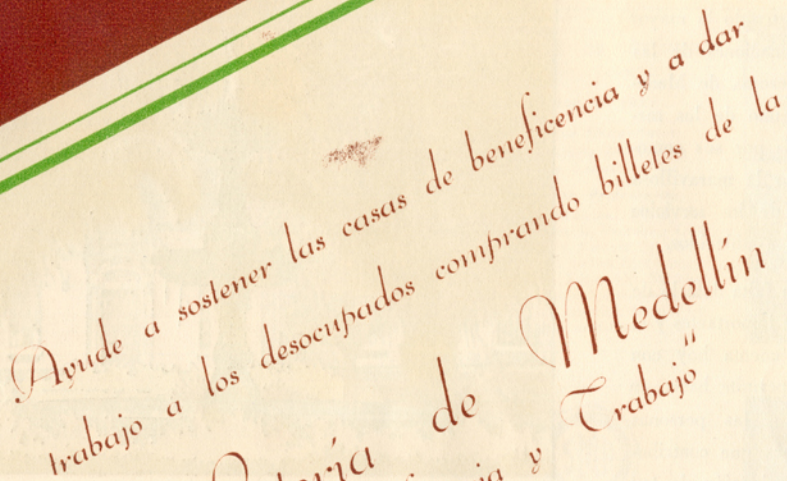 Ayude a sostener las casas de beneficencia y a dar
trabajo a los desocupados comprando billetes de la
de Medellín
y Trabajo"